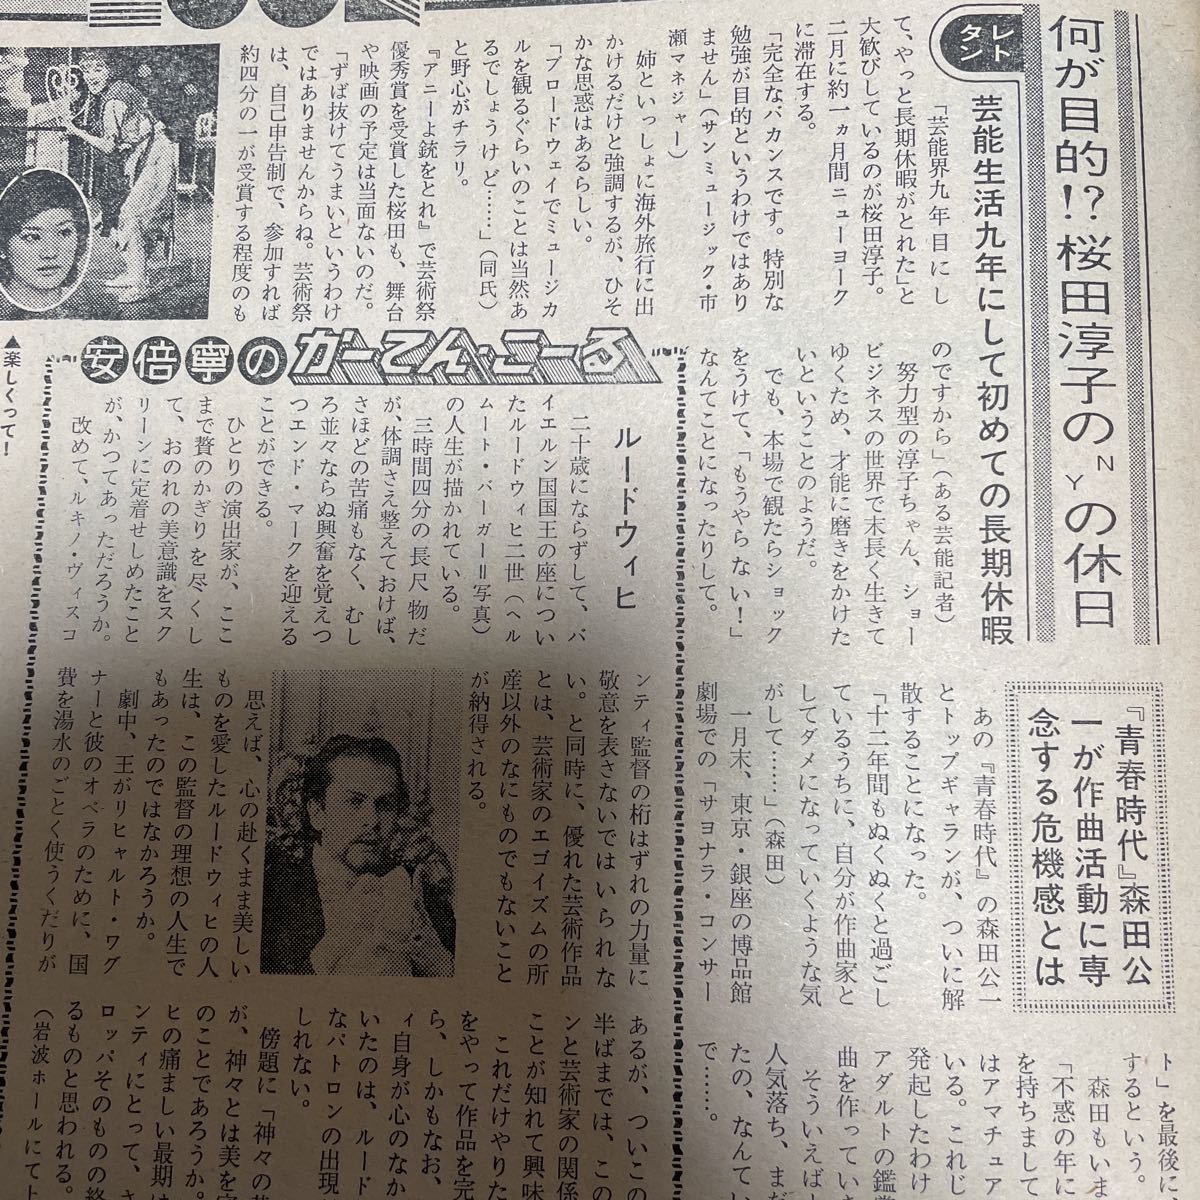 タレント
何が目的!?桜田淳子のNYの休日
芸能生活九年にして初めての長期休暇
「芸能界九年目にし
て、やっと長期休暇がとれた」と
大歓びしているのが桜田淳子。
二月に約一ヵ月間ニューヨーク
に滞在する。
「完全なバカンスです。特別な
勉強が目的というわけではあり
ません」(サンミュージック・市
瀬マネジャー)
姉といっしょに海外旅行に出
かけるだけと強調するが、ひそ
かな思惑はあるらしい。
「ブロードウェイでミュージカ
ルを観るぐらいのことは当然あ
るでしょうけど……」(同氏)
と野心がチラリ。
『アニーよ銃をとれ』で芸術祭
優秀賞を受賞した桜田も、舞台
や映画の予定は当面ないのだ。
「ずば抜けてうまいというわけ
ではありませんからね。芸術祭
は、自己申告制で、参加すれば
約四分の一が受賞する程度のも
のですから」(ある芸能記者)
努力型の淳子ちゃん、ショー
ビジネスの世界で末長く生きて
ゆくため、才能に磨きをかけた
いということのようだ。
でも、本場で観たらショック
をうけて、「もうやらない!」
なんてことになったりして。
『青春時代』森田公
一が作曲活動に専
念する危機感とは
あの『青春時代』の森田公一
とトップギャランが、ついに解
散することになった。
「十二年間もぬくぬくと過ごし
ているうちに、自分が作曲家と
してダメになっていくような気
がして……」(森田)
一月末、東京・銀座の博品館
劇場での「サヨナラ・コンサー
ト」を最後に、
するという。
森田もいま
「不惑の年に
を持ちまして
はアマチュア
いる。これじ
発起したわけ
アダルトの鑑賞
曲を作っていき
そういえば
人気落ち、まだ
たの、なんてい
で……。
安倍寧のかーてん・こーる
ルードウィヒ
二十歳にならずして、バ
イエルン国国王の座につい
たルードウィヒ二世(ヘル
ムート・バーガー＝写真)
の人生が描かれている。
三時間四分の長尺物だ
が、体調さえ整えておけば、
さほどの苦痛もなく、むし
ろ並々ならぬ興奮を覚えつ
つエンド・マークを迎える
ことができる。
ひとりの演出家が、ここ
まで贅のかぎりを尽くし
て、おのれの美意識をスク
リーンに定着せしめたこと
が、かつてあっただろうか。
改めて、ルキノ・ヴィスコ
ンティ監督の桁はずれの力量に
敬意を表さないではいられな
い。と同時に、優れた芸術作品
とは、芸術家のエゴイズムの所
産以外のなにものでもないこと
が納得される。
思えば、心の赴くまま美しい
ものを愛したルードウィヒの人
生は、この監督の理想の人生で
もあったのではなかろうか。
劇中、王がリヒャルト・ワグ
ナーと彼のオペラのために、国
費を湯水のごとく使うくだりが
あるが、ついこの
半ばまでは、この
ンと芸術家の関係
ことが知れて興味
これだけやりた
をやって作品を完
ら、しかもなお、
ィ自身が心のなか
いたのは、ルード
なパトロンの出現
しれない。
傍題に「神々の
が、神々とは美を
のことであろうか。
ヒの痛ましい最期は
ンティにとって、
ロッパそのものの終
るものと思われる。
(岩波ホールにて上
▲楽しくって!